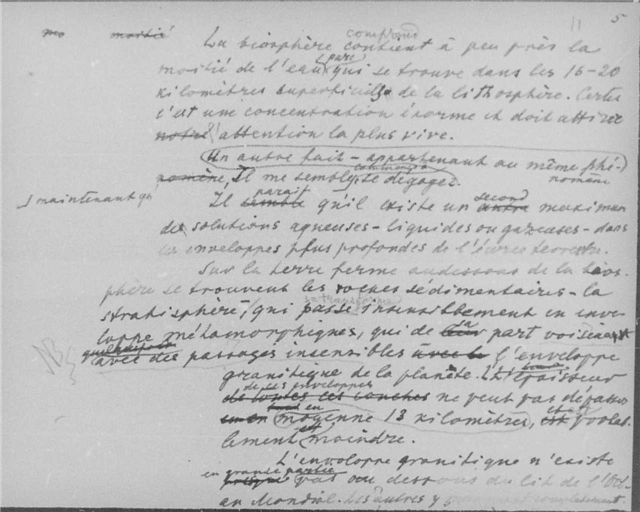 5
comprend
La biosphère contient à peu près la
moitié de l'eau (pure) qui se trouve dans les 15-20
kilomètres superficiels de la lithosphère. Certes
c'est une concentration énorme et doit attirer
notre attention la plus vive.
Un autre fait - appartenant au même phé-
nomène, Il me semble, se dégager.
maintenant qu
paraît second
Il semble qu'il existe un autre maximum
des solutions aqueuses - liquides ou gazeuses - dans
les enveloppes plus profondes de l'écorce terrestre.
Sur la terre ferme au dessous de la bios-
phère se trouvent les roches sédimentaires - la
stratisphère, qui passe insensiblement en enve-
loppe métamorphique, qui de sa part voisine
NB
avec des passages insensibles avec l'enveloppe
granitique de la planète. L'épaisseur
de ses enveloppes
de toutes ces couches ne peut pas dépasser
en
moyenne 13 kilomètres, est
lement est moindre.
L'enveloppe granitique n'existe
en grande partie
pas au dessous du lit de l'Océ-
an Mondial. Les autres y